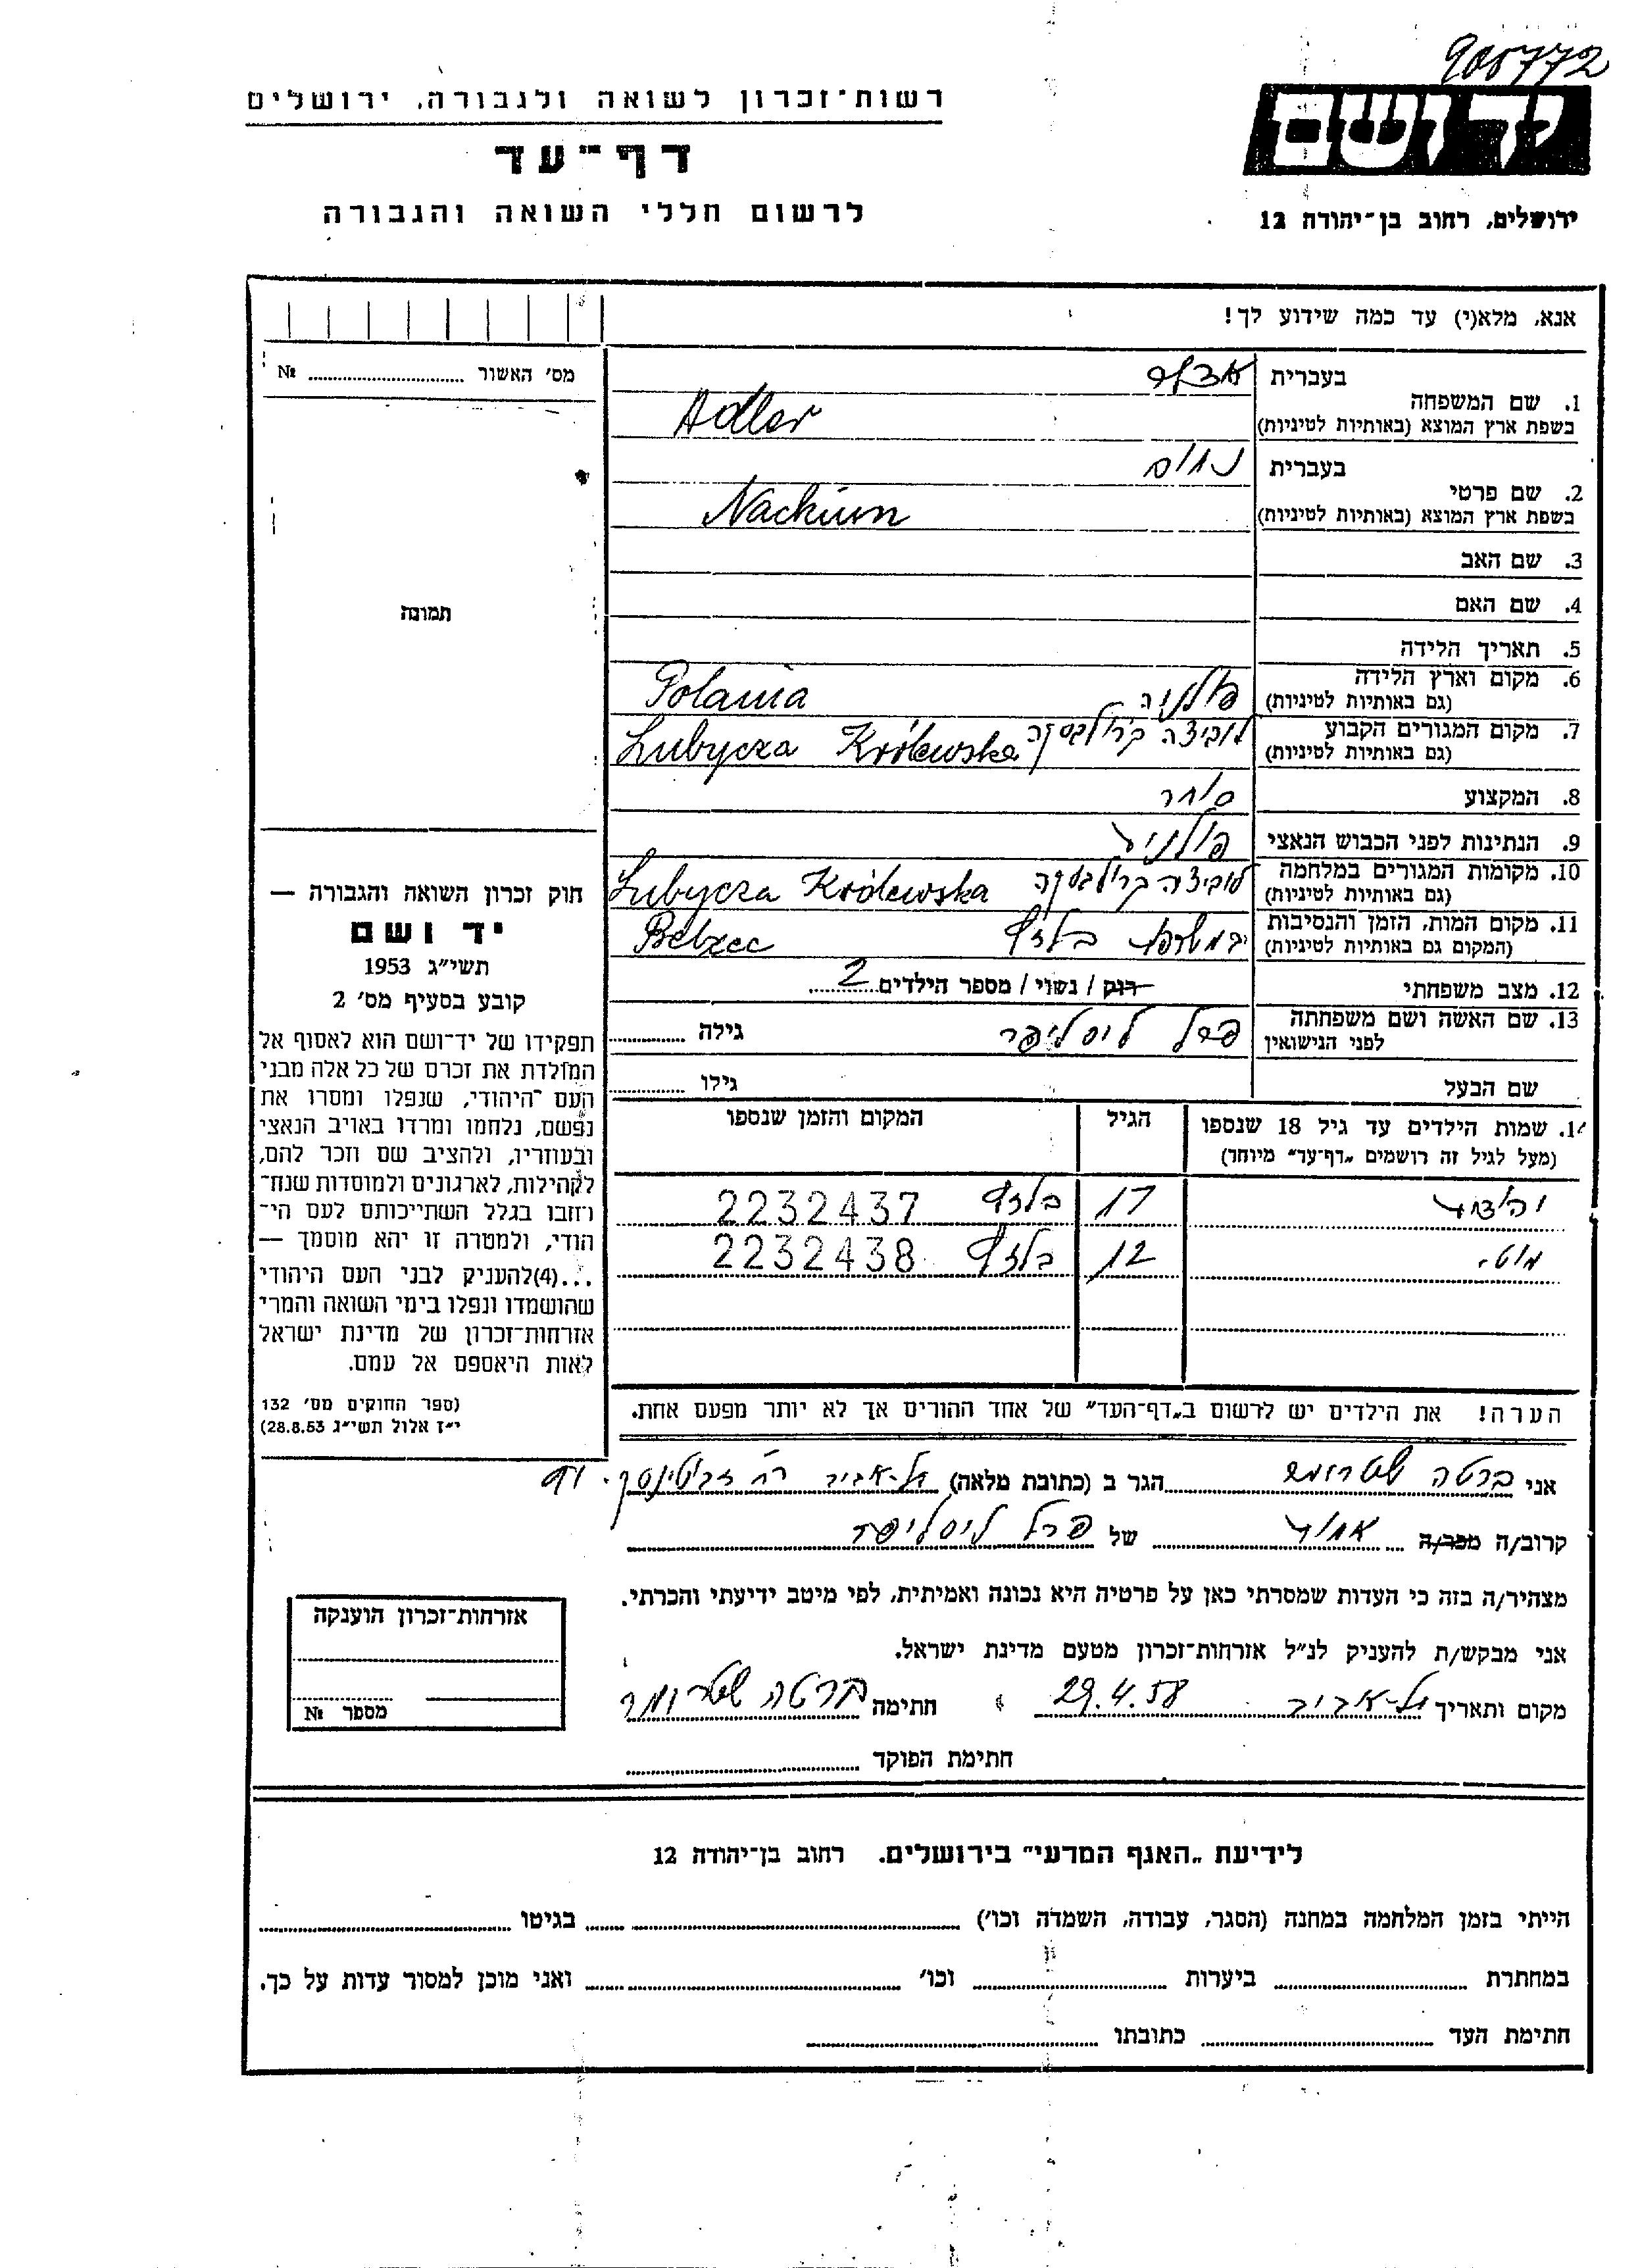 905772
יד ושם
ירושלים, רחוב בן־יהודה 12
רשות־זכרון לשואה ולגבורה, ירושלים
דף־עד
לרשום חללי השואה והגבורה
אנא, מלא(י) עד כמה שידוע לך!
מס׳ האשור № 
1. שם המשפחה
בעברית אדלר
בשפת ארץ המוצא (באותיות לטיניות) Adler
2. שם פרטי
בעברית נחום
בשפת ארץ המוצא (באותיות לטיניות) Nachum
3. שם האב
4. שם האם
5. תאריך הלידה
6. מקום וארץ הלידה פולניה Polania
(גם באותיות לטיניות)
7. מקום המגורים הקבוע לוביצה קרולבסקה Lubycza Królewska
(גם באותיות לטיניות)
8. המקצוע סוחר
9. הנתינות לפני הכבוש הנאצי פולנית
10. מקומות המגורים במלחמה לוביצה קרולבסקה Lubycza Królewska
(גם באותיות לטיניות)
11. מקום המות, הזמן והנסיבות בלזץ Belzec
(המקום גם באותיות לטיניות)
12. מצב משפחתי רוק / נשוי / מספר הילדים 2
13. שם האשה ושם משפחתה
לפני הנישואין פרל גילה
שם הבעל גילו
תמונה
חוק זכרון השואה והגבורה —
יד ושם
תשי״ג 1953
קובע בסעיף מס׳ 2
תפקידו של יד־ושם הוא לאסוף אל
המולדת את זכרם של כל אלה מבני
העם היהודי, שנפלו ומסרו את
נפשם, נלחמו ומרדו באויב הנאצי
ובעוזריו, ולהציב שם וזכר להם,
לקהילות, לארגונים ולמוסדות שנח־
רזבו בגלל השתייכותם לעם הי־
הודי, ולמטרה זו יהא מוסמך —
...(4)להעניק לבני העם היהודי
שהושמדו ונפלו בימי השואה והמרי
אזרחות־זכרון של מדינת ישראל
לאות היאספם אל עמם.
(ספר החוקים מס׳ 132
י״ז אלול תשי״ג 28.8.53)
14. שמות הילדים עד גיל 18 שנספו הגיל המקום והזמן שנספו
(מעל לגיל זה רושמים „דף־עד״ מיוחד)
17 בלזץ 2232437
12 בלזץ 2232438
הערה! את הילדים יש לרשום ב„דף־העד״ של אחד ההורים אך לא יותר מפעם אחת.
אני ברטה הגר ב (כתובת מלאה) תל־אביב רח׳ זבוטינסקי
קרוב/ה מכר/ה אחות של פרל
מצהיר/ה בזה כי העדות שמסרתי כאן על פרטיה היא נכונה ואמיתית, לפי מיטב ידיעתי והכרתי.
אני מבקש/ת להעניק לנ״ל אזרחות־זכרון מטעם מדינת ישראל.
מקום ותאריך תל־אביב 29.4.58 חתימה ברטה
חתימת הפוקד
אזרחות־זכרון הוענקה
מספר №
לידיעת „האגף המדעי״ בירושלים. רחוב בן־יהודה 12
הייתי בזמן המלחמה במחנה (הסגר, עבודה, השמדה וכו׳) בגיטו
במחתרת ביערות וכו׳ ואני מוכן למסור עדות על כך.
חתימת העד כתובתו